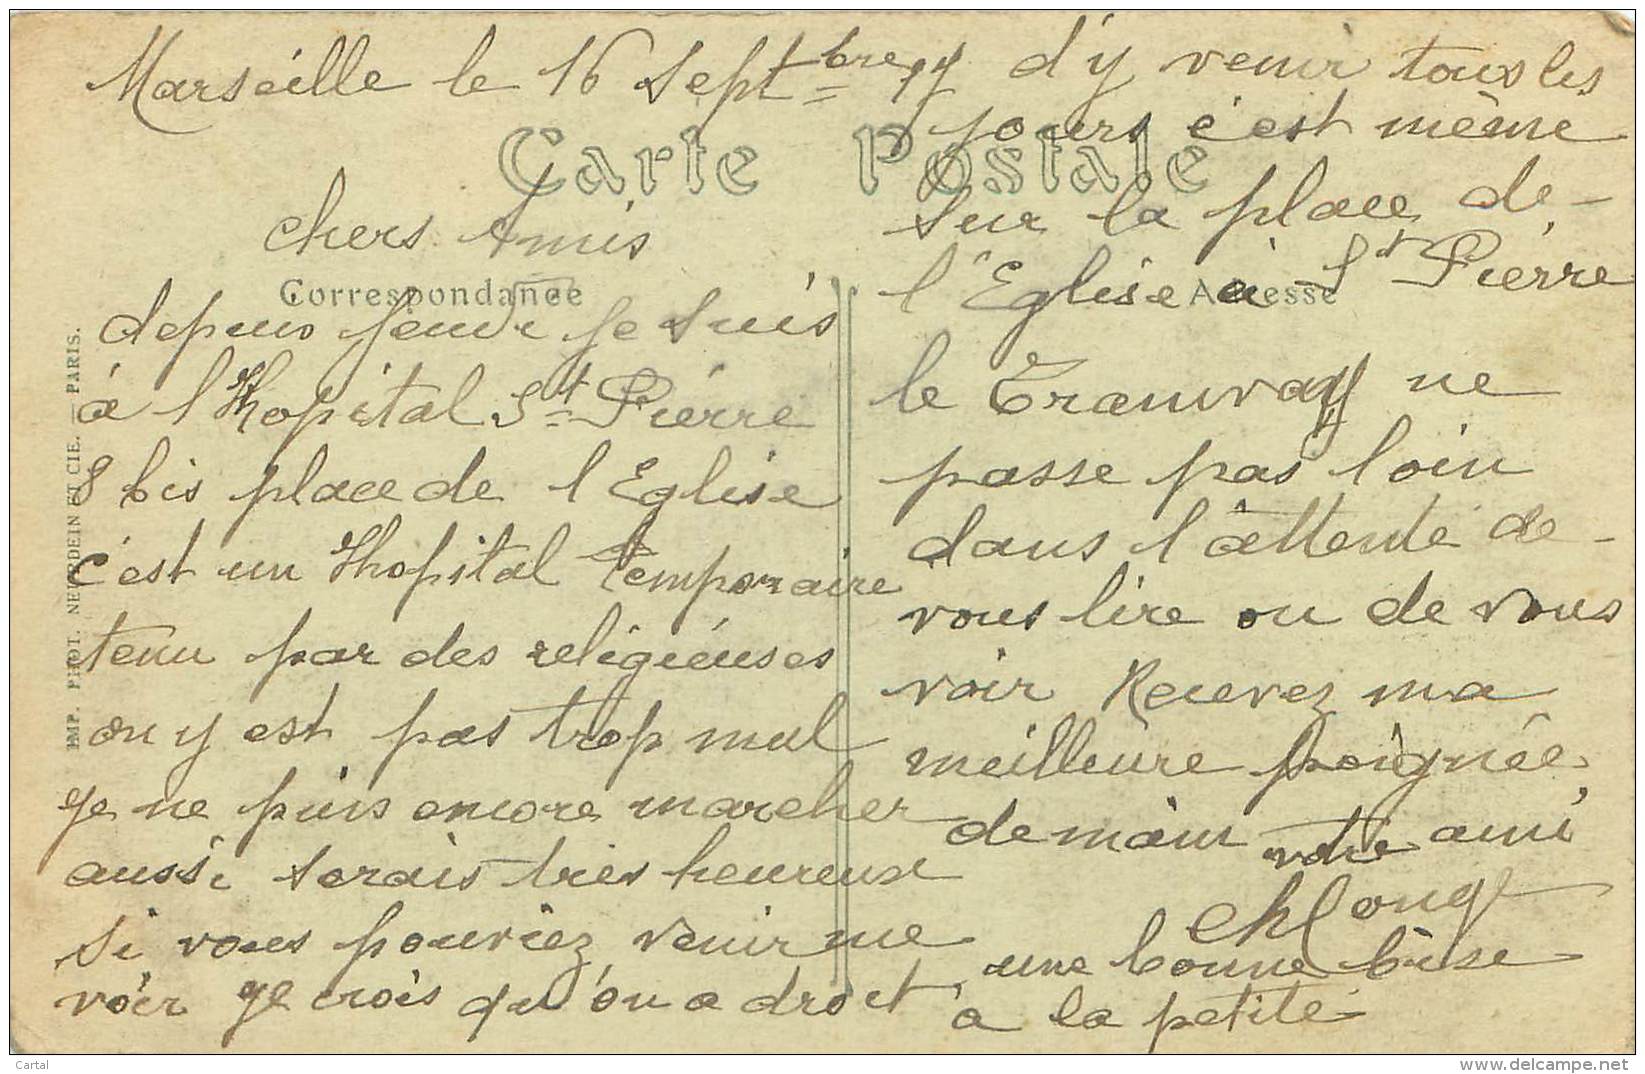 Marseille le 16 Septbre
Carte Postale
chers Amis
Correspondance
depuis jeudi je suis
à l'Hopital St Pierre
8 bis place de l'Eglise
c'est un Hopital temporaire
tenu par des religieuses
on y est pas trop mal
je ne puis encore marcher
aussi serais très heureux
si vous pouviez venir me
voir je crois qu'on a droit
d'y venir tous les
jours c'est même
sur la place de
l'Eglise à St Pierre
Adresse
le Tramway ne
passe pas loin
dans l'attente de
vous lire ou de vous
voir Recevez ma
meilleure poignée
de main votre ami
Ch Long
une bonne bise
à la petite
IMP. PHOT. NEURDEIN ET CIE. — PARIS.
Cartal
www.delcampe.net